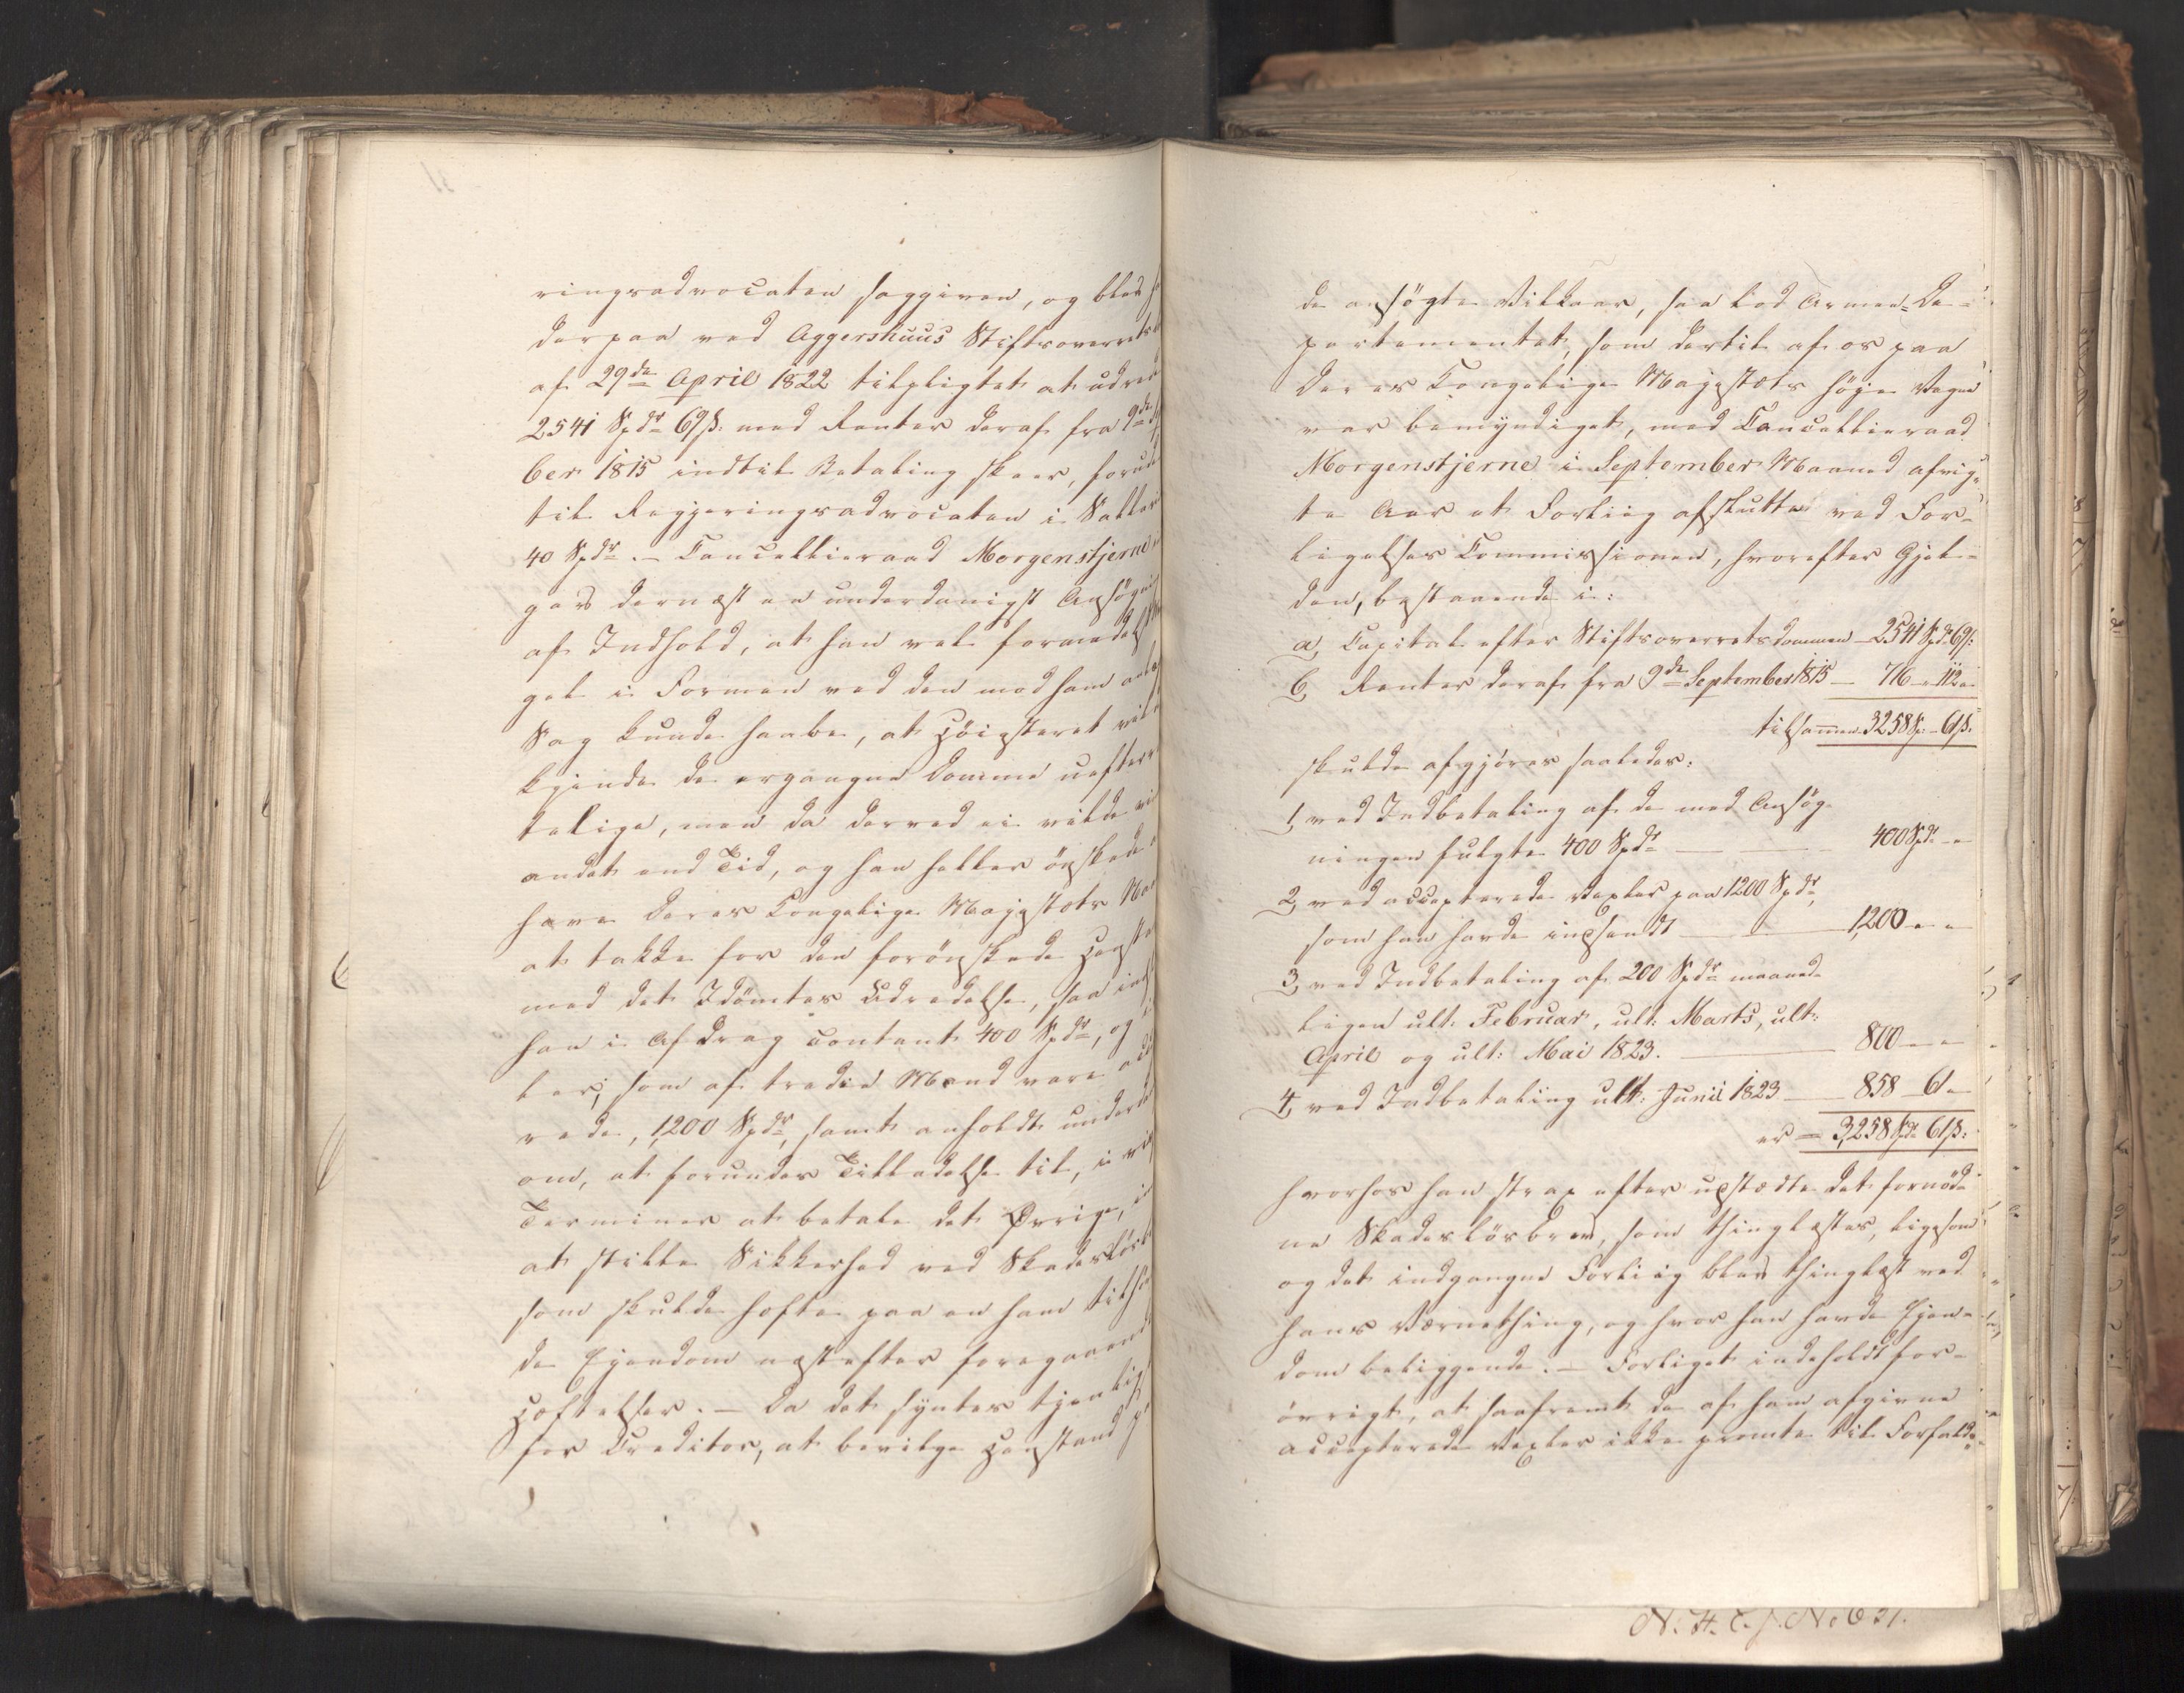 ringsadvocaten saggiven, og blev
derpaa ved Aggershuus Stiftsoverrets
af 29de April 1822 tilpligtet at udrede
2541 Spdr 69 ß. med Renter deraf fra 9de
ber 1815 indtil Betaling skeer, foruden
til Regjeringsadvocaten i Sallair
40 Spdr. – Cancellieraad Morgenstjerne
gav dernæst en underdanigst Ansøgning
af Indhold, at han vel formedelst
gel i Formen ved den mod ham anlagte
Sag kunde haabe, at Höiesteret vilde
kjende de ergangne Domme uefterret
telige, men da derved ei vilde
andet end Tid, og han heller önskede
have Deres Kongelige Majestæts Naade
at takke for den forönskede Henstand
med det Idømtes Udredelse, saa indsendte
han i Afdrag contant 400 Spdr, og
ler, som af tredie Mand vare acc
rede, 1200 Spdr, samt anholdt underda
om, at forundes Tilladelse til, i
Terminer at betale det Øvrige,
at stille Sikkerhed ved Skadeslösb
som skulde hefte paa en ham tilhören
de Ejendom næstefter foregaaende
Hæftelser. – Da det syntes tjenligst
for Creditor, at bevilge Henstand
de ansögte Vilkaar, saa lod Armee-De-
partementet, som dertil af os paa
Deres Kongelige Majestæts höje Vegne
var bemyndiget, med Cancellieraad
Morgenstjerne i September Maaned afvig-
te Aar et Forliig afslutte ved For-
ligelses Commissionen, hvorefter Gjel-
den, bestaaende i:
a, Capital efter Stiftsoverretsdommen – 2541 Spdr 69 ß:
b, Renter deraf fra 9de September 1815 – 716 „ 112 „
tilsammen 3258 Sp. – 61 ß.
skulde afgjöres saaledes:
1, ved Indbetaling af de med Ansög-
ningen fulgte 400 Spdr – 400 Spdr „
2, ved accepterede Vexler paa 1200 Spdr,
som han havde indsendt – 1,200 „ „
3, ved Indbetaling af 200 Spdr maaned-
ligen ult: Februar, ult: Marts, ult:
April og ult: Mai 1823. – 800 – „
4, ved Indbetaling ult: Junii 1823 – 858 – 61 „
er = 3,258 Spdr 61 ß:
hvorhos han strax efter udstædte det fornöd-
ne Skadeslösbrev, som thinglæstes, ligesom
og det indgangne Forliig blev thinglæst ved
hans Værnething, og hvor han havde Ejen-
dom beliggende. – Forliget indeholdt for-
övrigt, at saafremt de af ham afgivne
accepterede Vexler ikke promte til Forfalds-
N. H. C. J. No 621.